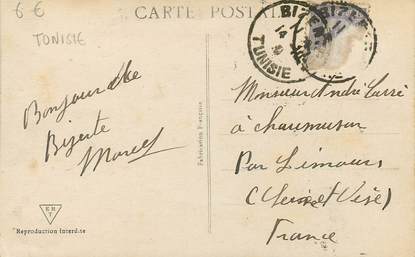 6 €
TUNISIE
CARTE POSTALE
BIZERTE
TUNISIE
Bonjour de
Bizerte
Marcel
Monsieur André Carré
à chaumusson
Par Limours
(Seine et Oise)
France
Fabrication Française
Reproduction Interdite